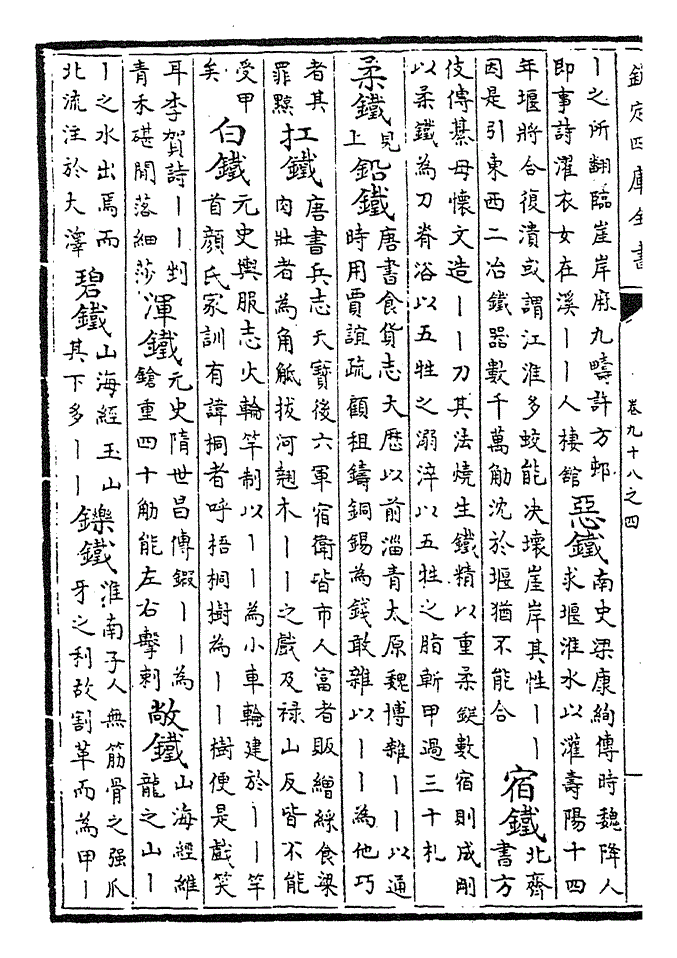 欽定四庫全書
卷九十八之四
丨之所翻臨崖岸庶九疇許方邨即事詩濯衣女在溪丨丨人棲舘惡鐵南史梁康絢傳時魏降人求堰淮水以灌壽陽十四
年堰將合復潰或謂江淮多蛟能决壞崖岸其性丨丨因是引東西二冶鐵器數千萬觔沈於堰猶不能合宿鐵北齊書方
伎傳綦母懷文造丨丨刀其法燒生鐵精以重柔鋌數宿則成剛以柔鐵為刀脊浴以五牲之溺淬以五牲之脂斬甲過三十札
柔鐵見上鉛鐵唐書食貨志大厯以前淄青太原魏博雜丨丨以通時用賈誼疏顧租鑄銅錫為錢敢雜以丨丨為他巧
者其罪黥扛鐵唐書兵志天寶後六軍宿衛皆市人富者販繒綵食粱肉壯者為角觝拔河翹木丨丨之戲及禄山反皆不能
受甲矣白鐵元史輿服志火輪竿制以丨丨為小車輪建於丨丨竿首顔氏家訓有諱桐者呼梧桐樹為丨丨樹便是戲笑
耳李賀詩丨丨剉青禾碪間落細莎渾鐵元史隋世昌傳鍜丨丨為鎗重四十觔能左右擊刺敞鐵山海經維龍之山丨
丨之水出焉而北流注於大澤碧鐵山海經玉山其下多丨丨鑠鐵淮南子人無筋骨之强爪牙之利故割革而為甲丨